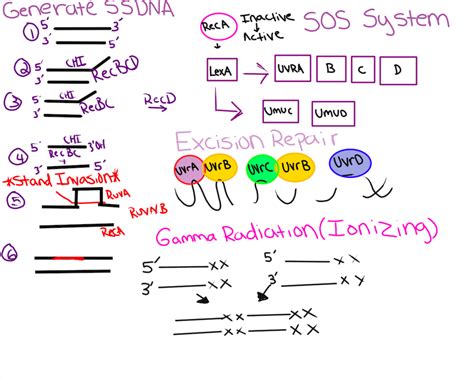 Generate SSDNA
① 5' 5'
3' 3'
② 5' CHI RecBCD
3'
③ 5' CHI RecBC RecD
3'
④ 5' CHI 3'
RecBC
3' 5'
*Stand Invasion*
⑤ RuvA
RUVNB
RecA
⑥
SOS System
RecA Inactive
Active
LexA UVRA B C D
UmUC UmUD
Excision Repair
UvrA UvrB UvrC UvrB UvrD
Gamma Radiation (Ionizing)
5' XX 5' XX
3' XX 3' XY
XX XX
XX XX